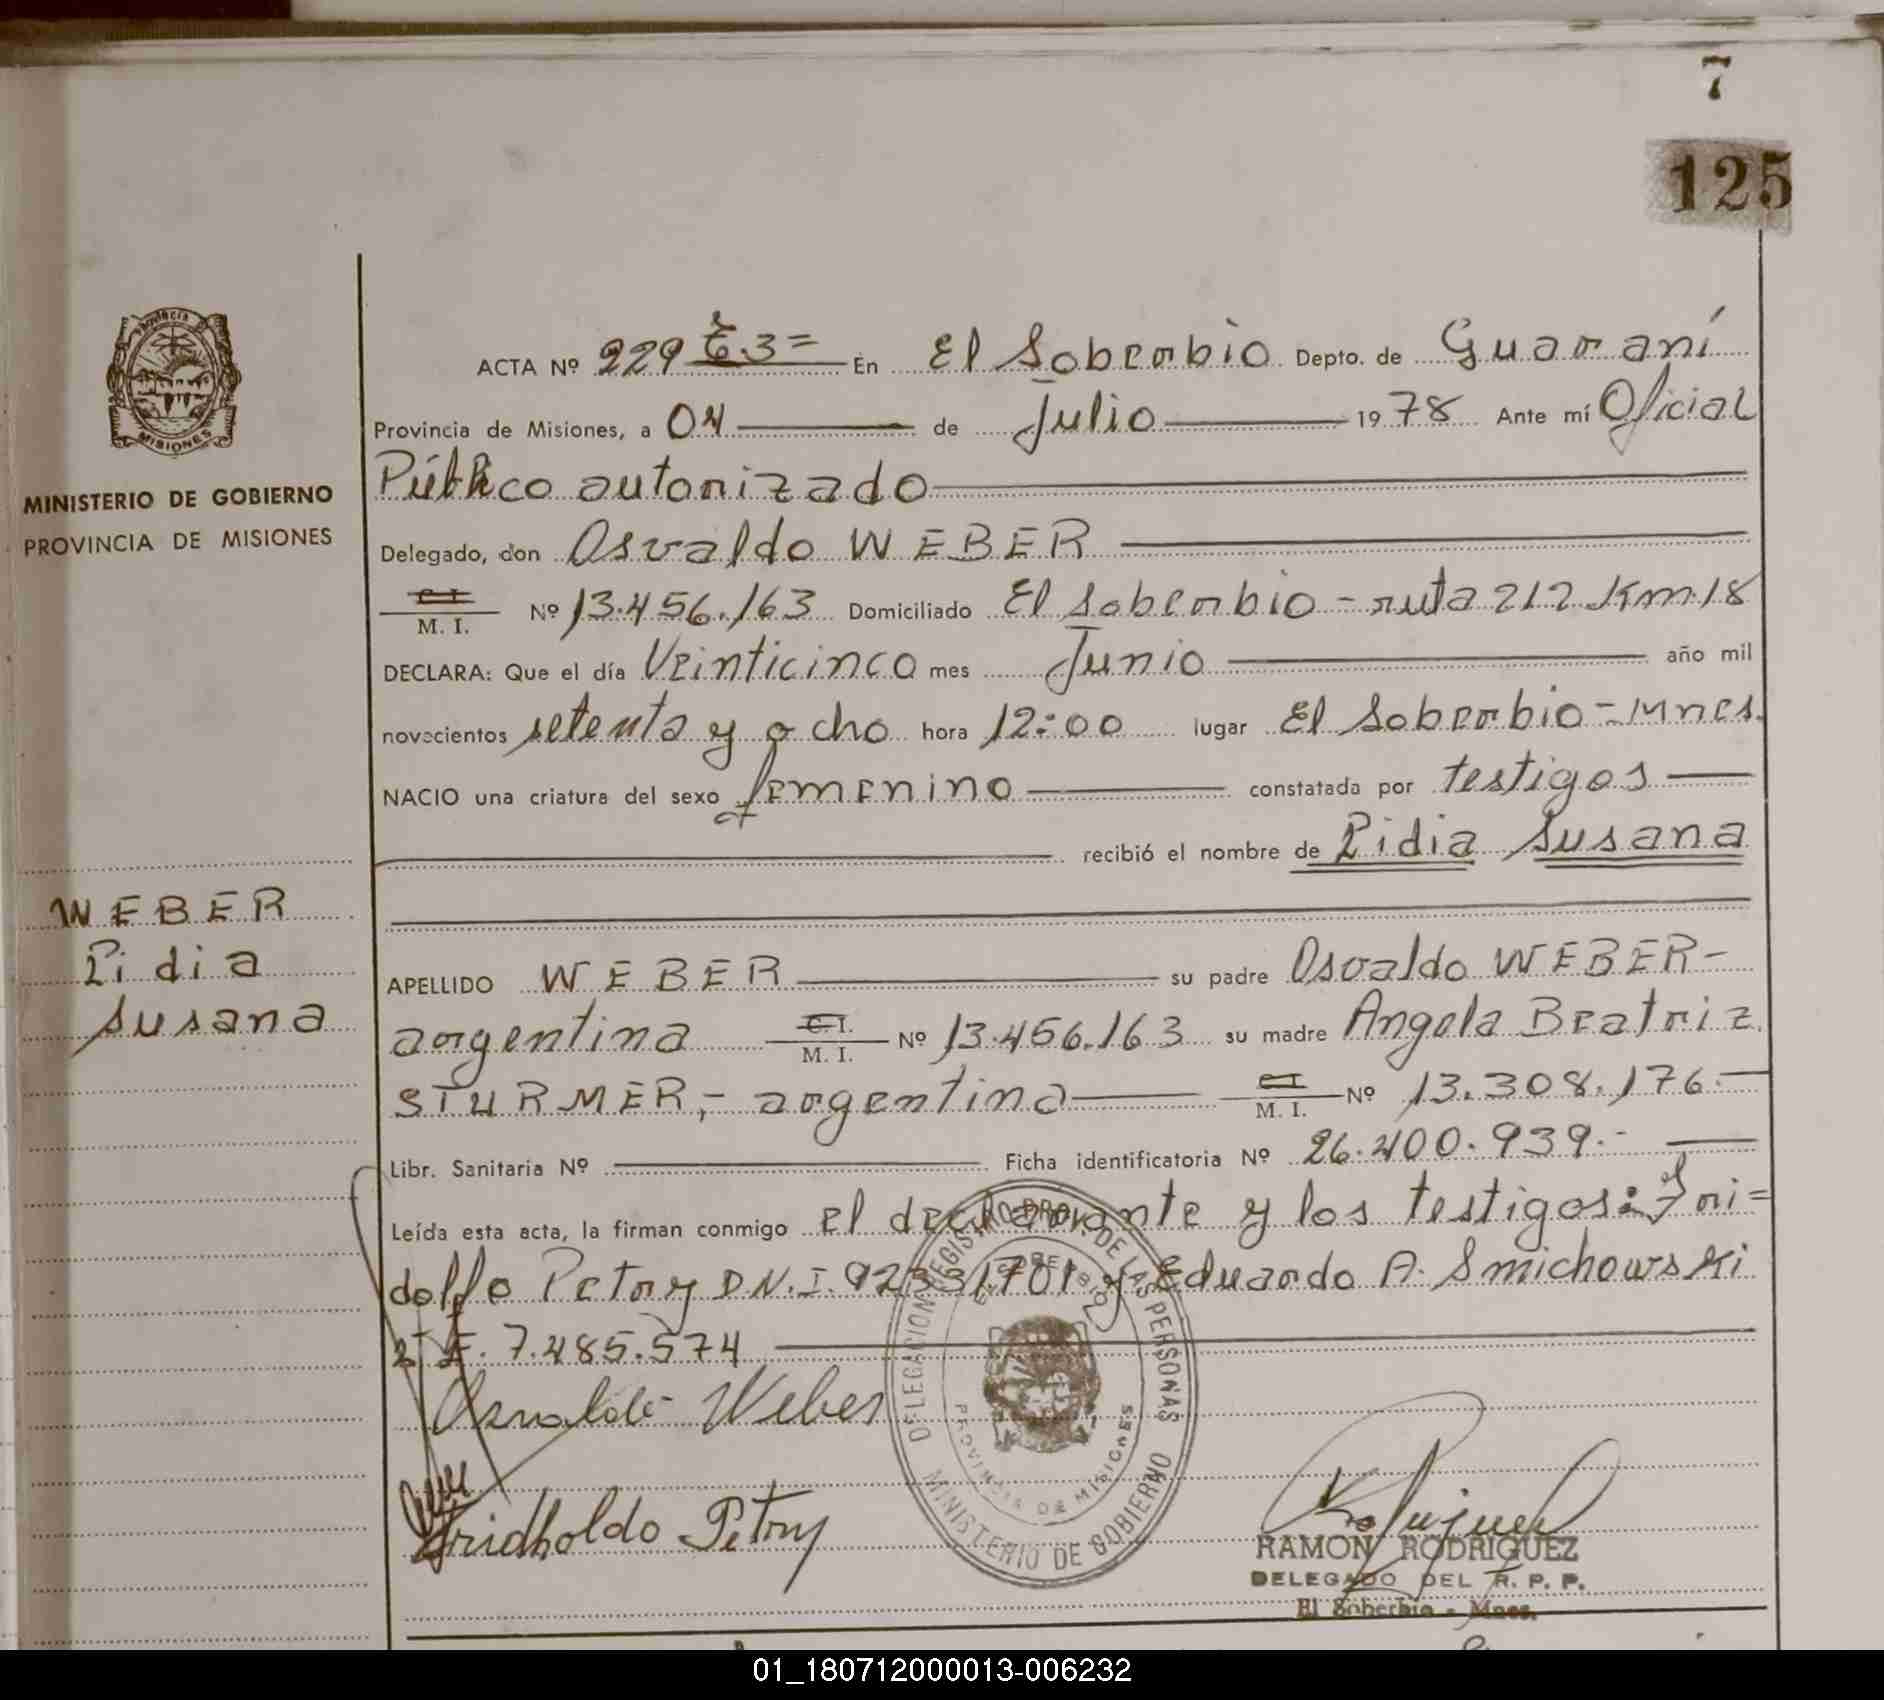 7
125
PROVINCIA
MISIONES
MINISTERIO DE GOBIERNO
PROVINCIA DE MISIONES
ACTA Nº 229 En El Soberbio Depto. de Guaraní
Provincia de Misiones, a 04 de Julio 1978 Ante mí Oficial
Público autorizado
Delegado, don Osvaldo WEBER
C.I.
M. I. Nº 13.456.163 Domiciliado El Soberbio - ruta 212 Km 18
DECLARA: Que el día Veinticinco mes Junio año mil
novecientos setenta y ocho hora 12:00 lugar El Soberbio - Mnes.
NACIO una criatura del sexo femenino constatada por testigos
recibió el nombre de Lidia Susana
WEBER
Lidia
Susana
APELLIDO WEBER su padre Osvaldo WEBER -
argentina C.I.
M. I. Nº 13.456.163 su madre Angela Beatriz
STURMER, - argentina C.I.
M. I. Nº 13.308.176.-
Libr. Sanitaria Nº Ficha identificatoria Nº 26.400.939.-
Leída esta acta, la firman conmigo El declarante y los testigos: Fri=
dolfo Petry D.N.I. 92.331.701 y Eduardo A. Smichowski
L.E. 7.485.574
Osvaldo Weber
Fridholdo Petry
DELEGACION REGISTRO PROV. DE LAS PERSONAS
EL SOBERBIO
PROVINCIA DE MISIONES
MINISTERIO DE GOBIERNO
RAMON RODRIGUEZ
DELEGADO DEL R. P. P.
El Soberbio - Mnes.
01_180712000013-006232